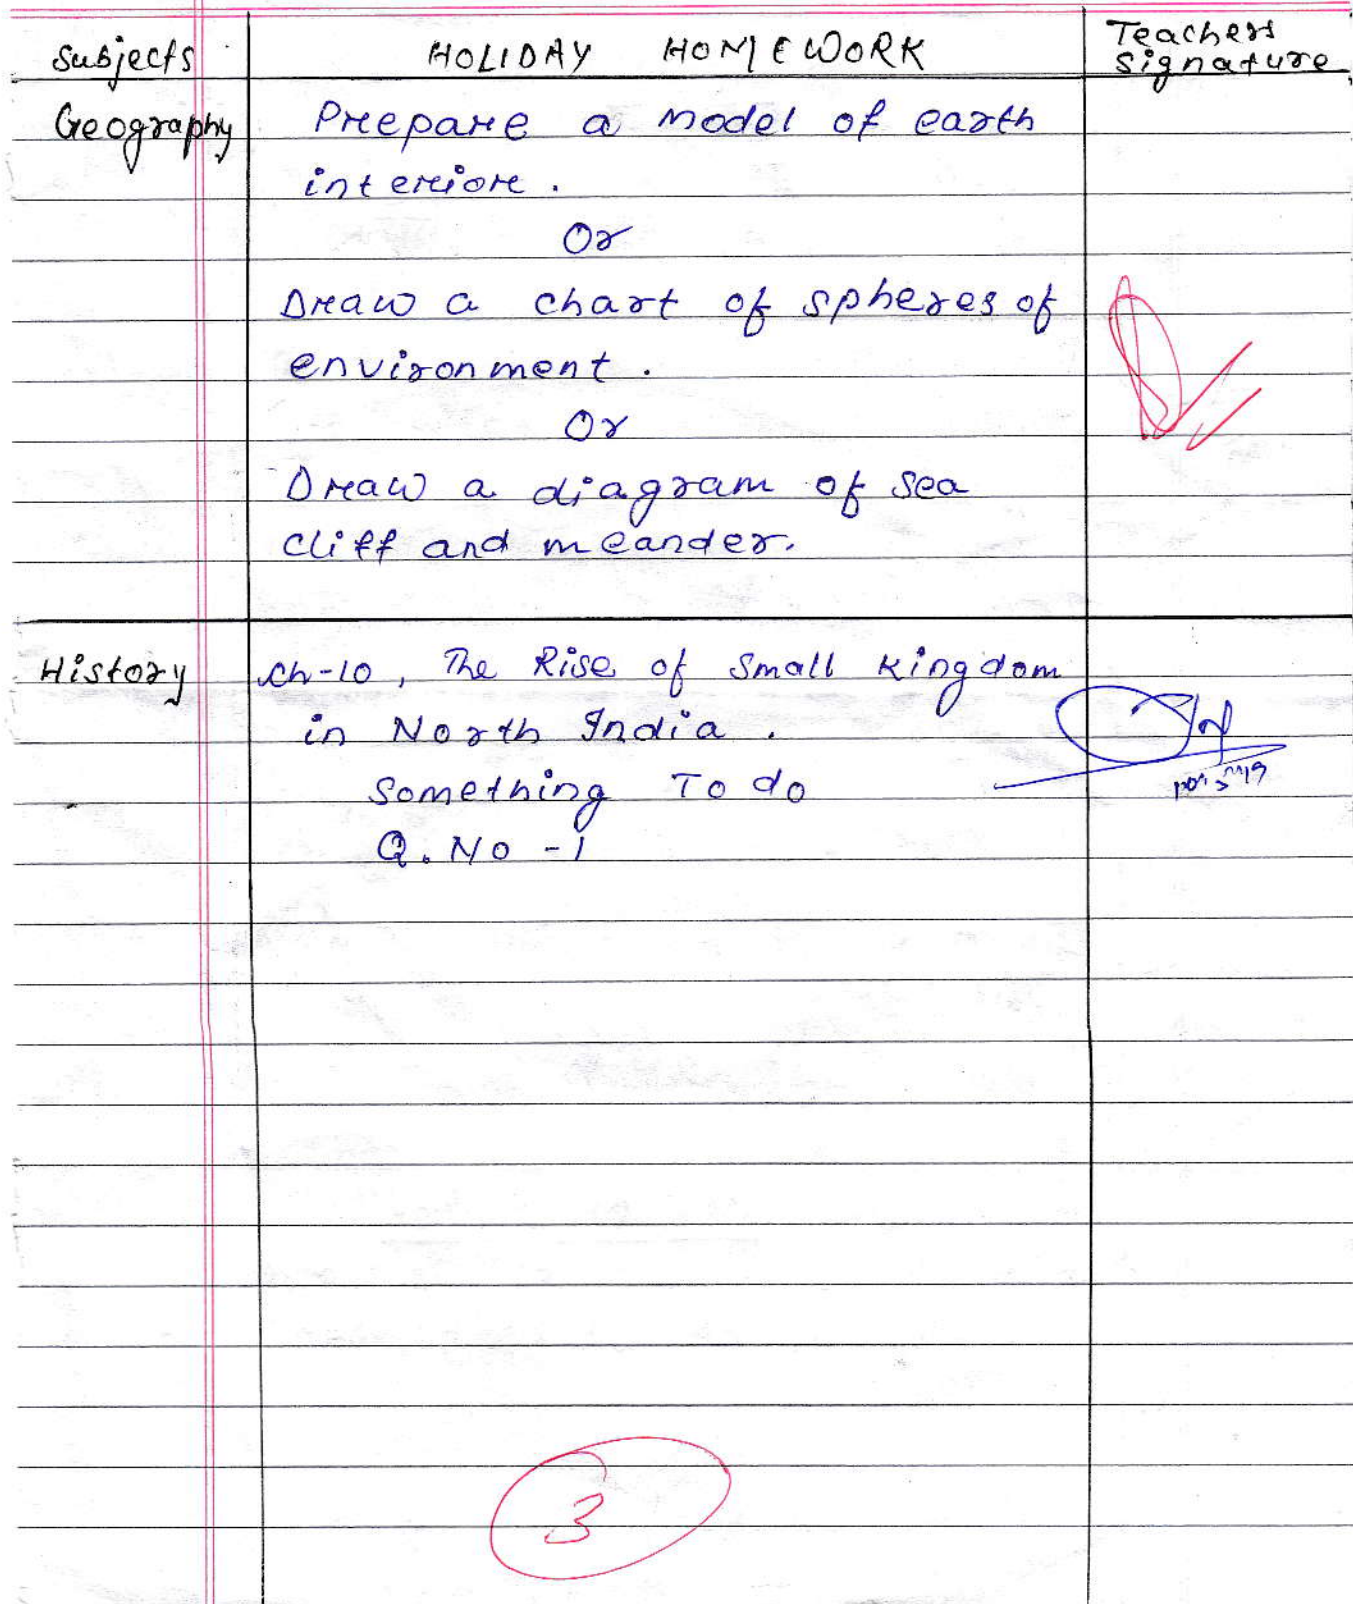 Subjects HOLIDAY HOMEWORK Teachers
Signature
Geography Prepare a model of earth
interiore.
Or
Draw a chart of spheres of
environment.
Or
Draw a diagram of sea
cliff and meander.
History Ch-10, The Rise of Small Kingdom
in North India.
Something To do
Q. No -1
3